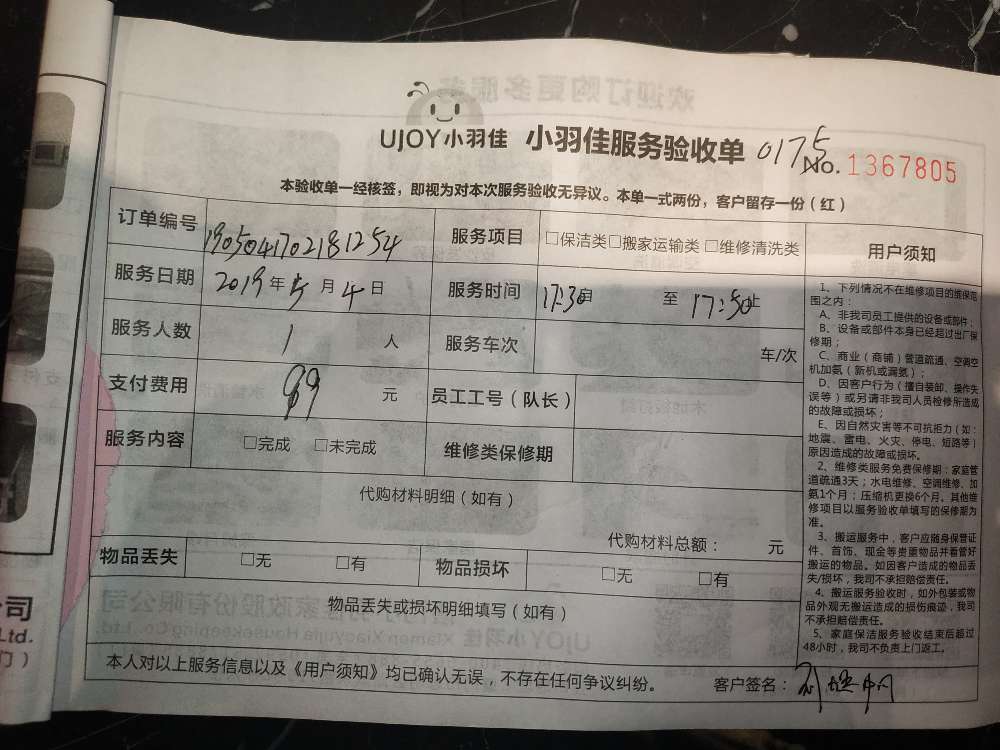 UJOY小羽佳 小羽佳服务验收单 0175 No. 1367805
本验收单一经核签，即视为对本次服务验收无异议。本单一式两份，客户留存一份（红）
订单编号 1905041702181254 服务项目 □保洁类□搬家运输类□维修清洗类
服务日期 2019年5月4日 服务时间 17:30自 至 17:50止
服务人数 1 人 服务车次 车/次
支付费用 99 元 员工工号（队长）
服务内容 □完成 □未完成 维修类保修期
代购材料明细（如有）
代购材料总额： 元
物品丢失 □无 □有 物品损坏 □无 □有
物品丢失或损坏明细填写（如有）
本人对以上服务信息以及《用户须知》均已确认无误，不存在任何争议纠纷。 客户签名：
用户须知
1、下列情况不在维修项目的维保范
围之内：
A、非我司员工提供的设备或部件；
B、设备或部件本身已经超过出厂保
修期；
C、商业（商铺）管道疏通、空调空
机加氨（新机或漏氨）；
D、因客户行为（擅自装卸、操作失
误等）或另请非我司人员检修所造成
的故障或损坏；
E、因自然灾害等不可抗拒力（如：
地震、雷电、火灾、停电、短路等）
原因造成的故障或损坏。
2、维修类服务免费保修期：家庭管
道疏通3天；水电维修、空调维修、加
氨1个月；压缩机更换6个月。其他维
修项目以服务验收单填写的保修期为
准。
3、搬运服务中，客户应随身保管证
件、首饰、现金等贵重物品并看管好
搬运的物品。如因客户造成的物品丢
失/损坏，我司不承担赔偿责任。
4、搬运服务验收时，如外包装或物
品外观无搬运造成的损伤痕迹，我司
不承担赔偿责任。
5、家庭保洁服务验收结束后超过
48小时，我司不负责上门返工。
公司
Ltd.
门）